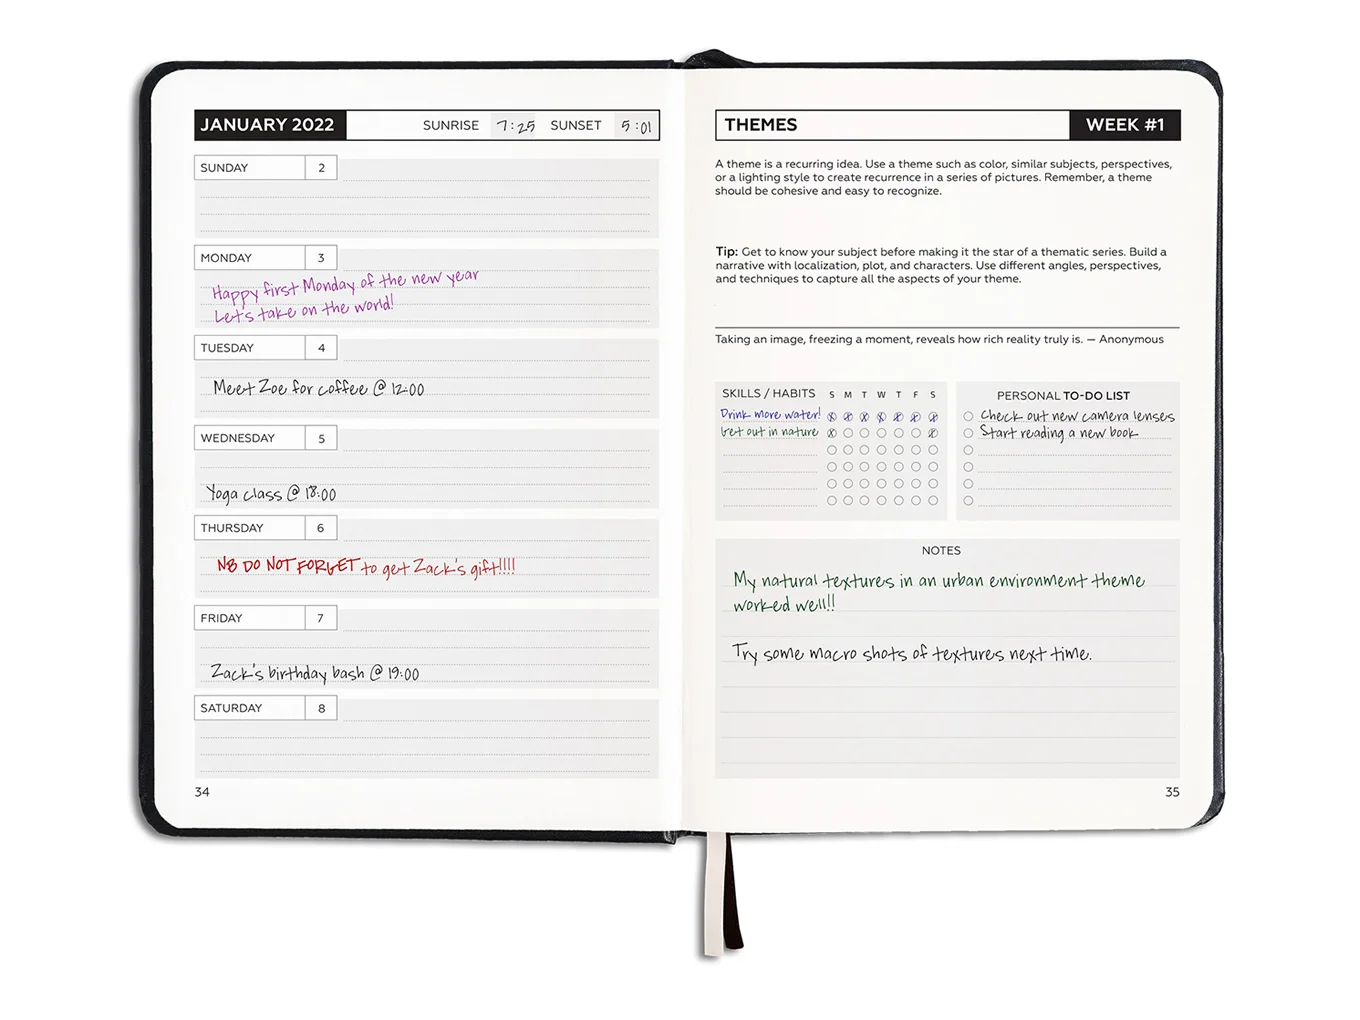 JANUARY 2022 SUNRISE 7:25 SUNSET 5:01
SUNDAY 2
MONDAY 3
Happy first Monday of the new year
Let's take on the world!
TUESDAY 4
Meet Zoe for coffee @ 12:00
WEDNESDAY 5
Yoga class @ 18:00
THURSDAY 6
NB DO NOT FORGET to get Zack's gift!!!!
FRIDAY 7
Zack's birthday bash @ 19:00
SATURDAY 8
34
THEMES WEEK #1
A theme is a recurring idea. Use a theme such as color, similar subjects, perspectives,
or a lighting style to create recurrence in a series of pictures. Remember, a theme
should be cohesive and easy to recognize.
Tip: Get to know your subject before making it the star of a thematic series. Build a
narrative with localization, plot, and characters. Use different angles, perspectives,
and techniques to capture all the aspects of your theme.
Taking an image, freezing a moment, reveals how rich reality truly is. — Anonymous
SKILLS / HABITS S M T W T F S
Drink more water!
Get out in nature
PERSONAL TO-DO LIST
Check out new camera lenses
Start reading a new book
NOTES
My natural textures in an urban environment theme
worked well!!
Try some macro shots of textures next time.
35